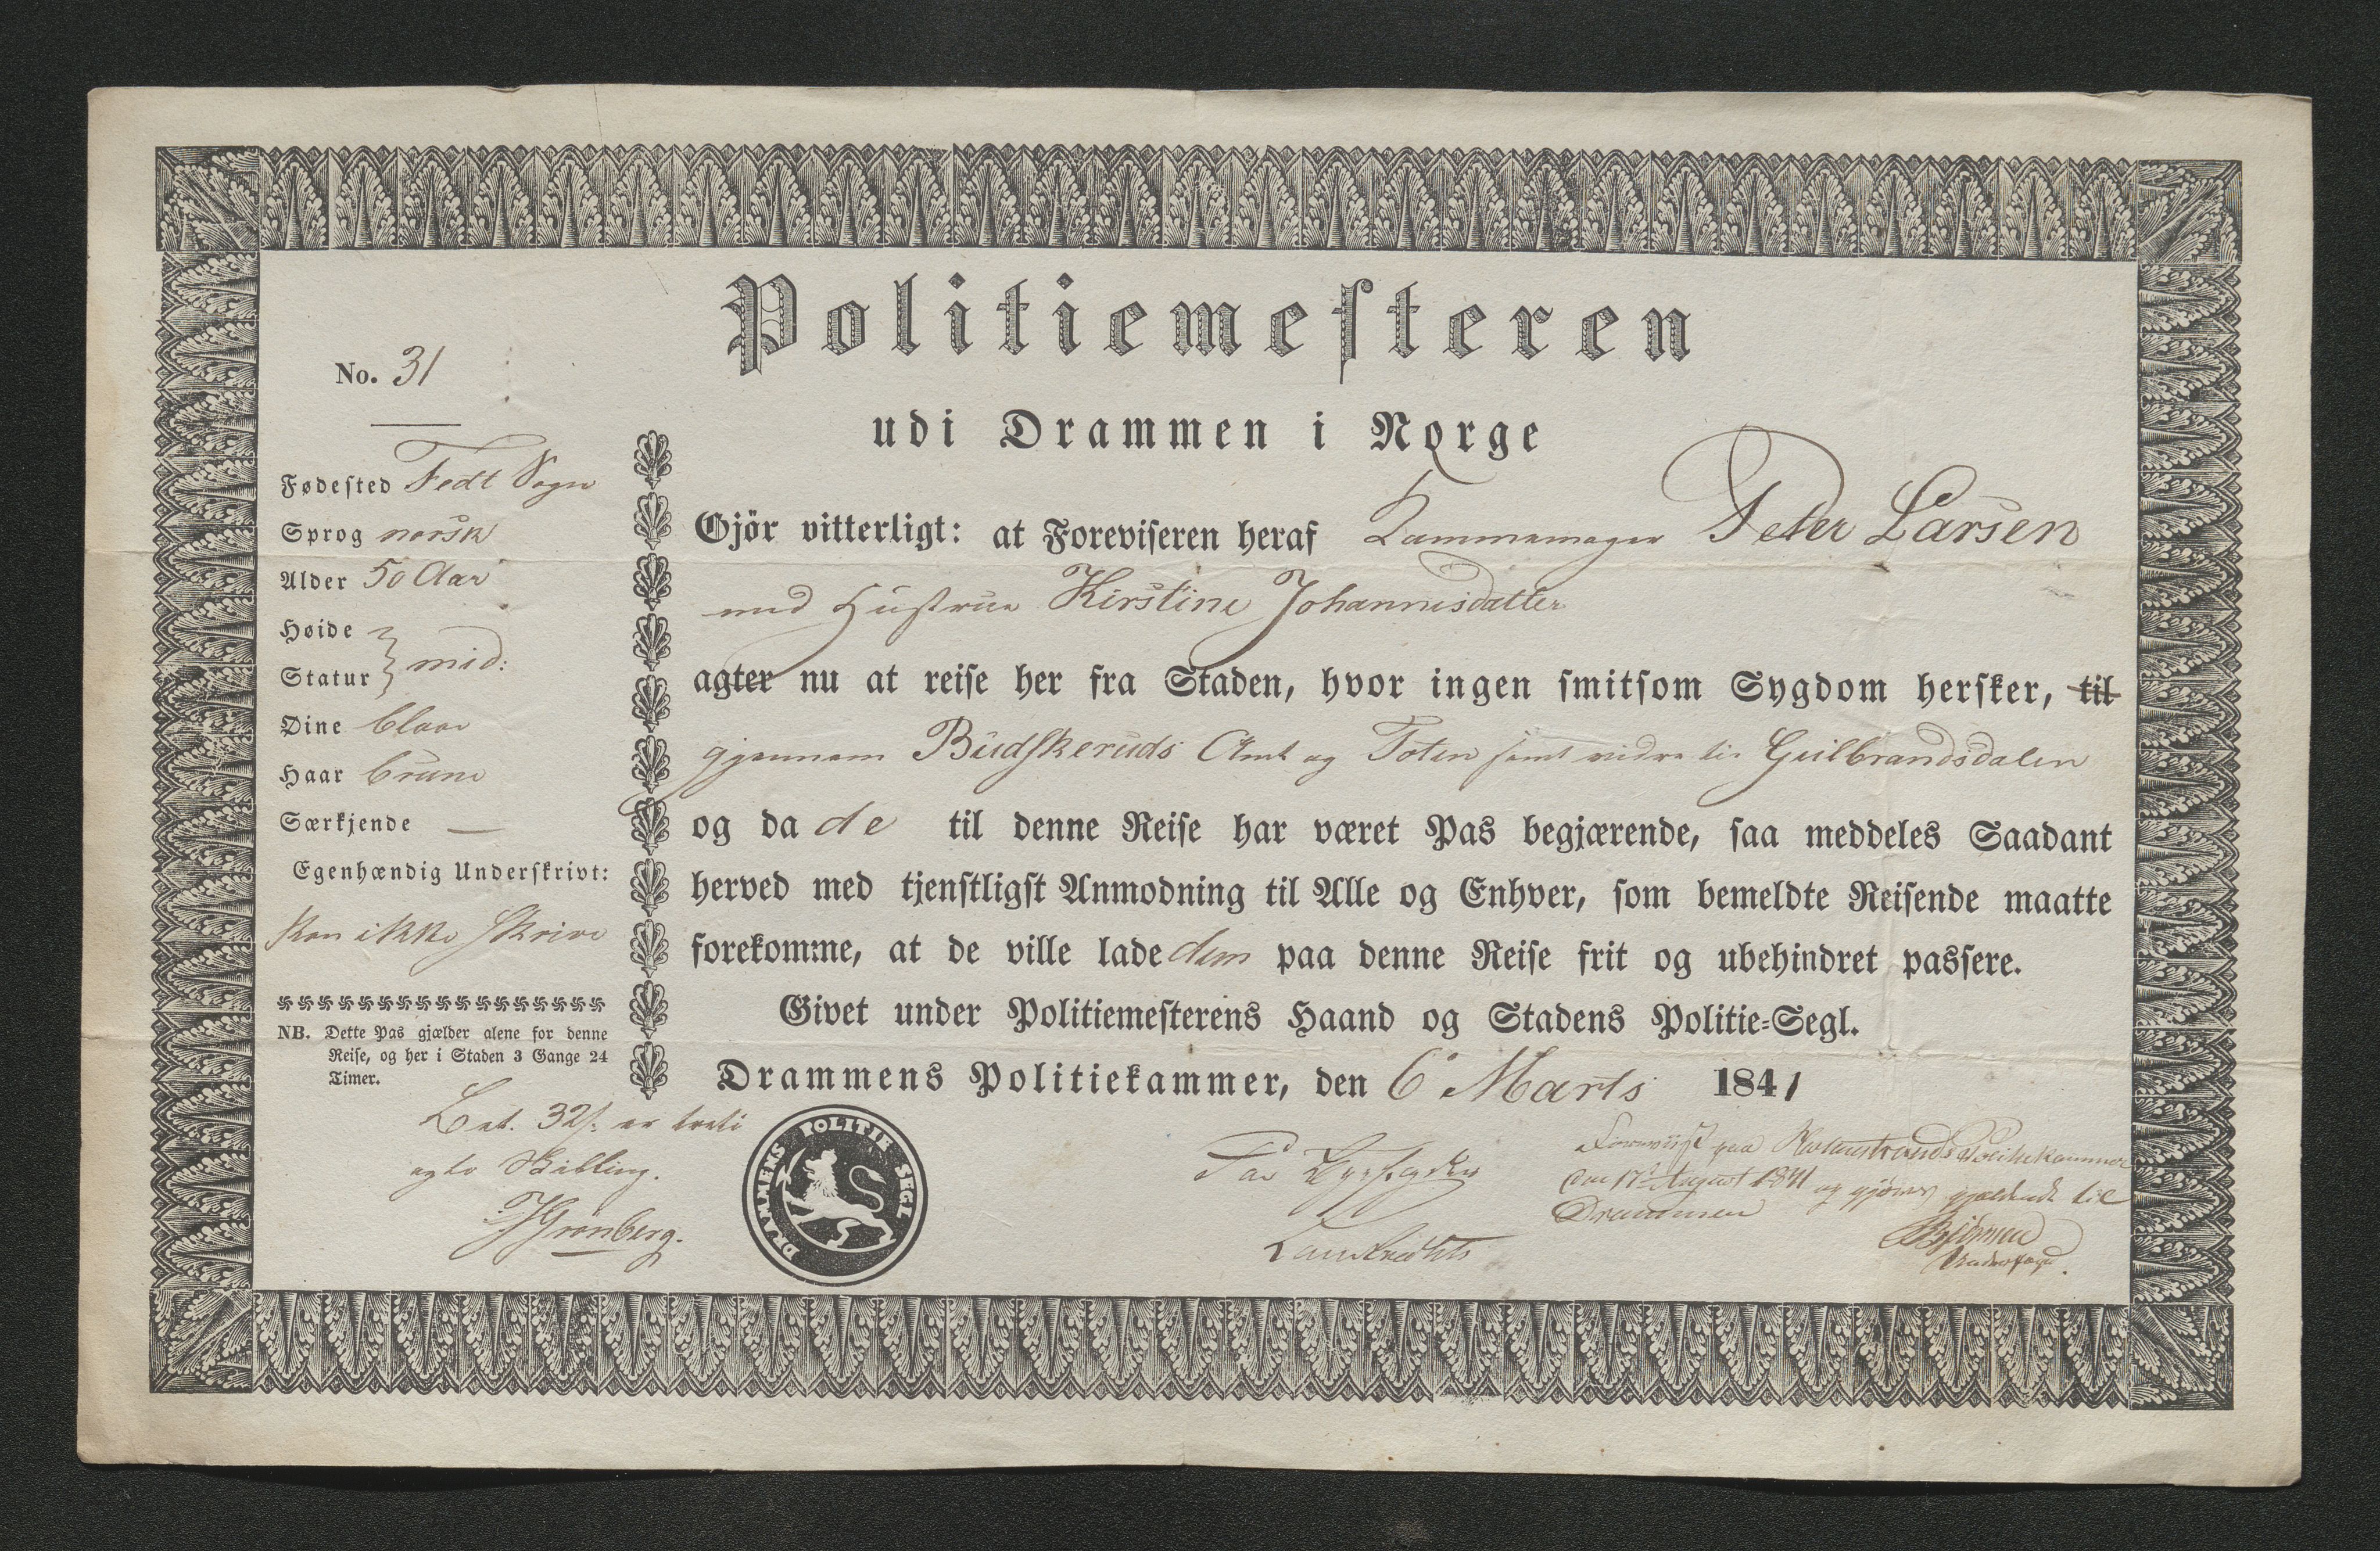 Politiemesteren
udi Drammen i Norge
No. 31
Fødested Fedt Sogn
Sprog norsk
Alder 50 Aar
Høide
Statur } mid:
Øine blaae
Haar brune
Særkjende —
Egenhændig Underskrivt:
kan ikke skrive
NB. Dette Pas gjælder alene for denne
Reise, og her i Staden 3 Gange 24
Timer.
Bet. 32 s. er treti
og to Skilling.
Grönberg.
Gjör vitterligt: at Foreviseren heraf Kammemager Peter Larsen
med Hustrue Kirstine Johannesdatter
agter nu at reise her fra Staden, hvor ingen smitsom Sygdom hersker, til
gjennem Budskeruds Amt og Toten samt vidre til Gulbrandsdalen
og da de til denne Reise har været Pas begjærende, saa meddeles Saadant
herved med tjenstligst Anmodning til Alle og Enhver, som bemeldte Reisende maatte
forekomme, at de ville lade dem paa denne Reise frit og ubehindret passere.
Givet under Politiemesterens Haand og Stadens Politie-Segl.
Drammens Politiekammer, den 6 Marts 1841
DRAMMENS POLITIE SEGL
Foreviist paa Holmestrands Politiekammer
den 17 August 1841 og gjøres gjældende til
Drammen